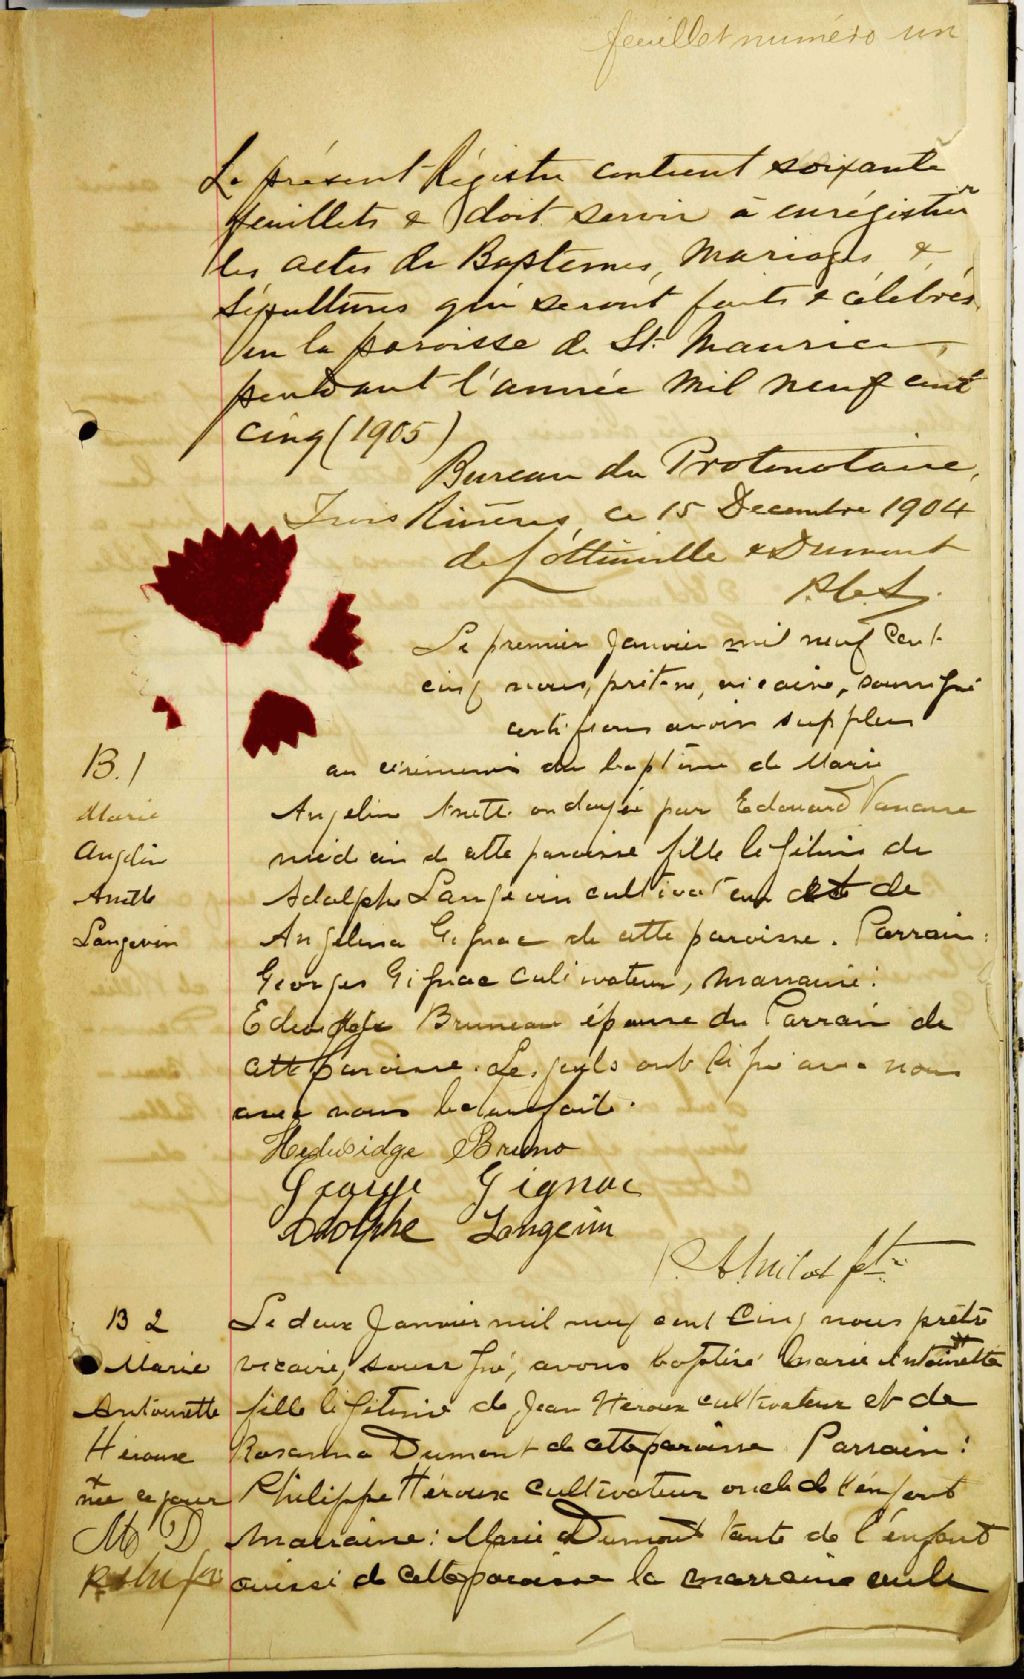 feuillet numéro un
Le présent Régistre contient soixante
feuillets & doit servir à enrégistrer
les actes de Baptemes, Mariages &
Sépultures qui seront faits & célébrés
en la paroisse de St. Maurice,
pendant l'année mil neuf cent
cinq (1905)
Bureau du Protonotaire,
Trois Rivières, ce 15 Decembre 1904
de Lottinville & Dumont
P.C.S.
Le premier Janvier mil neuf cent
cinq nous, prêtre, vicaire, soussigné
certifions avoir suppléer
au cérémonies du baptême de Marie
B. 1
Marie
Angelin
Anette
Langevin
Angelin Anette ondoyée par Edouard Vanasse
médecin de cette paroisse fille légitime de
Adolphe Langevin cultivateur et de
Angelina Gignac de cette paroisse. Parrain:
Georges Gignac cultivateur, marraine:
Bruneau épouse du Parrain de
cette paroisse. Lesquels ont signé avec nous
avec nous lecture faite.
Hedwidge Bruno
George Gignac
Adolphe Langevin
Milot ptre
B 2
Marie
Antoinette
Héroux
née ce jour
Le deux Janvier mil neuf cent cinq nous prêtre
vicaire, soussigné, avons baptisé Marie Antoinette
fille légitime de Jean Héroux cultivateur et de
Rosanna Dumont de cette paroisse Parrain:
Philippe Héroux cultivateur oncle de l'enfant
marraine: Marie Dumont tante de l'enfant
aussi de cette paroisse la marraine seule